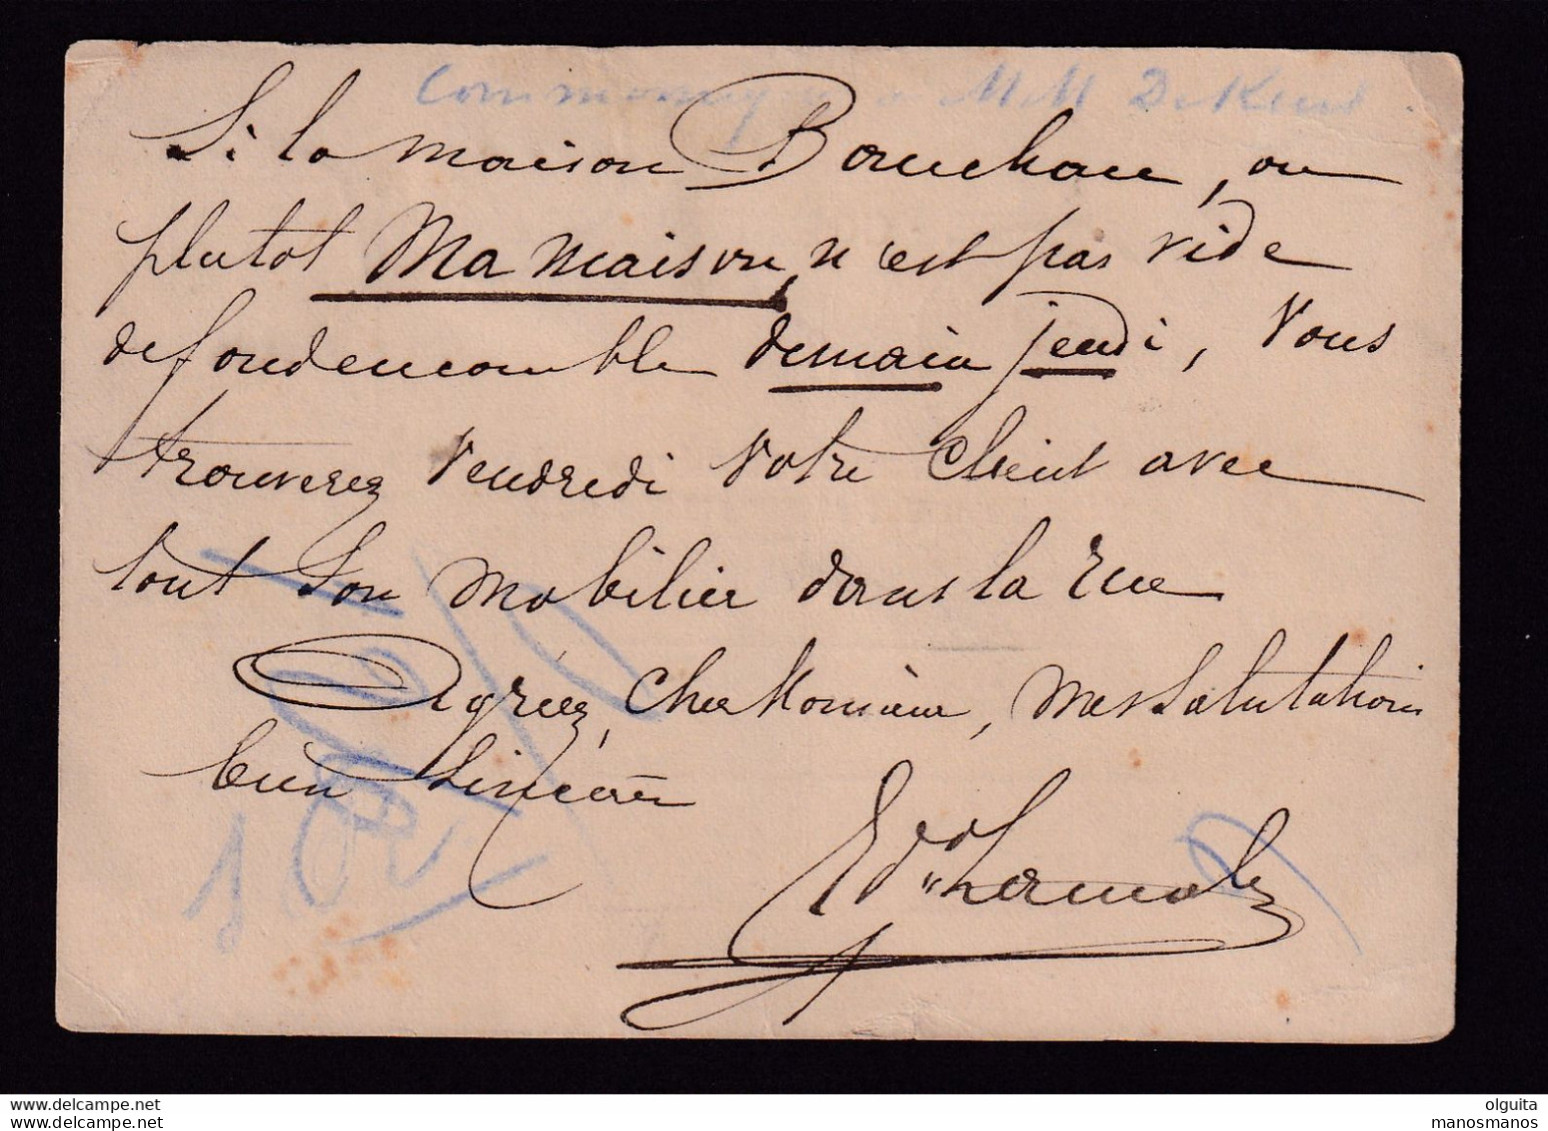 MM De
Si la maison Bauchau, ou
plutot Ma maison, n'est pas vide
de fond en comble demain jeudi, Vous
trouverez Vendredi Votre Client avec
tout Son Mobilier dans la rue
Agréez, Cher Monsieur, Mes Salutations
bien Sincères
olguita
manosmanos